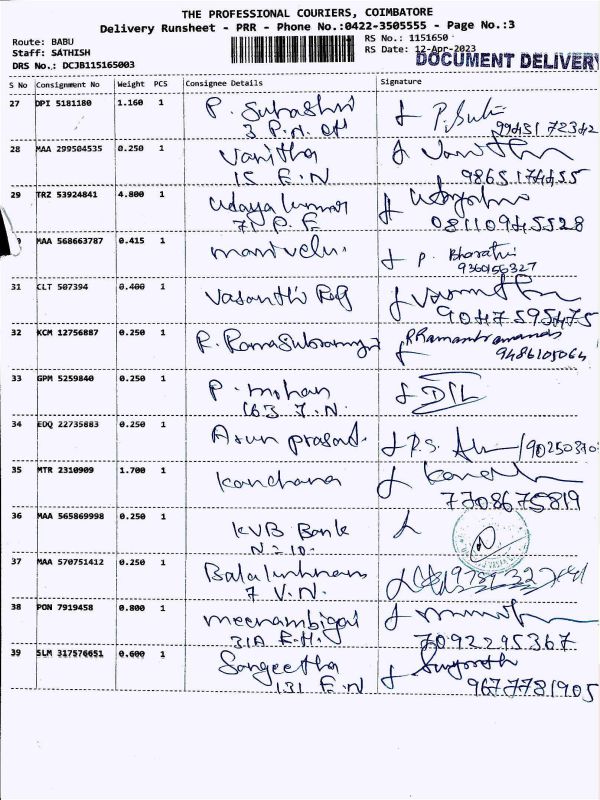 THE PROFESSIONAL COURIERS, COIMBATORE
Delivery Runsheet - PRR - Phone No.:0422-3505555 - Page No.:3
Route: BABU
RS No.: 1151650
Staff: SATHISH
RS Date: 12-Apr-2023
DOCUMENT DELIVERY
DRS No.: DCJB115165003
S No Consignment No Weight PCS Consignee Details Signature
27 DPI 5181180 1.160 1 P. Subashri P. Sub
3 P.N. 99431 72342
28 MAA 299504535 0.250 1 Vanitha
15 E.N 9865174455
29 TRZ 53924841 4.800 1 Udaya kumar
71 P.E 08110945528
MAA 568663787 0.415 1 manivelu. P. Bharathi
9360156327
31 CLT 507394 0.400 1 Vasanthi Raj
9047595475
32 KCM 12756887 0.250 1 R. Ramasubramayi
9486105064
33 GPM 5259840 0.250 1 P. mohan
163 7.N.
34 EDQ 22735883 0.250 1 Arun prasad. P.S. 90250370
35 MTR 2310909 1.700 1 Kanchana
7708675819
36 MAA 565869998 0.250 1 KVB Bank
N=10.
37 MAA 570751412 0.250 1
7 V.N.
38 PON 7919458 0.800 1 meenambigai
31A E.H. 7092295367
39 SLM 317576651 0.600 1 Sangeetha
131 E.N 9677781905